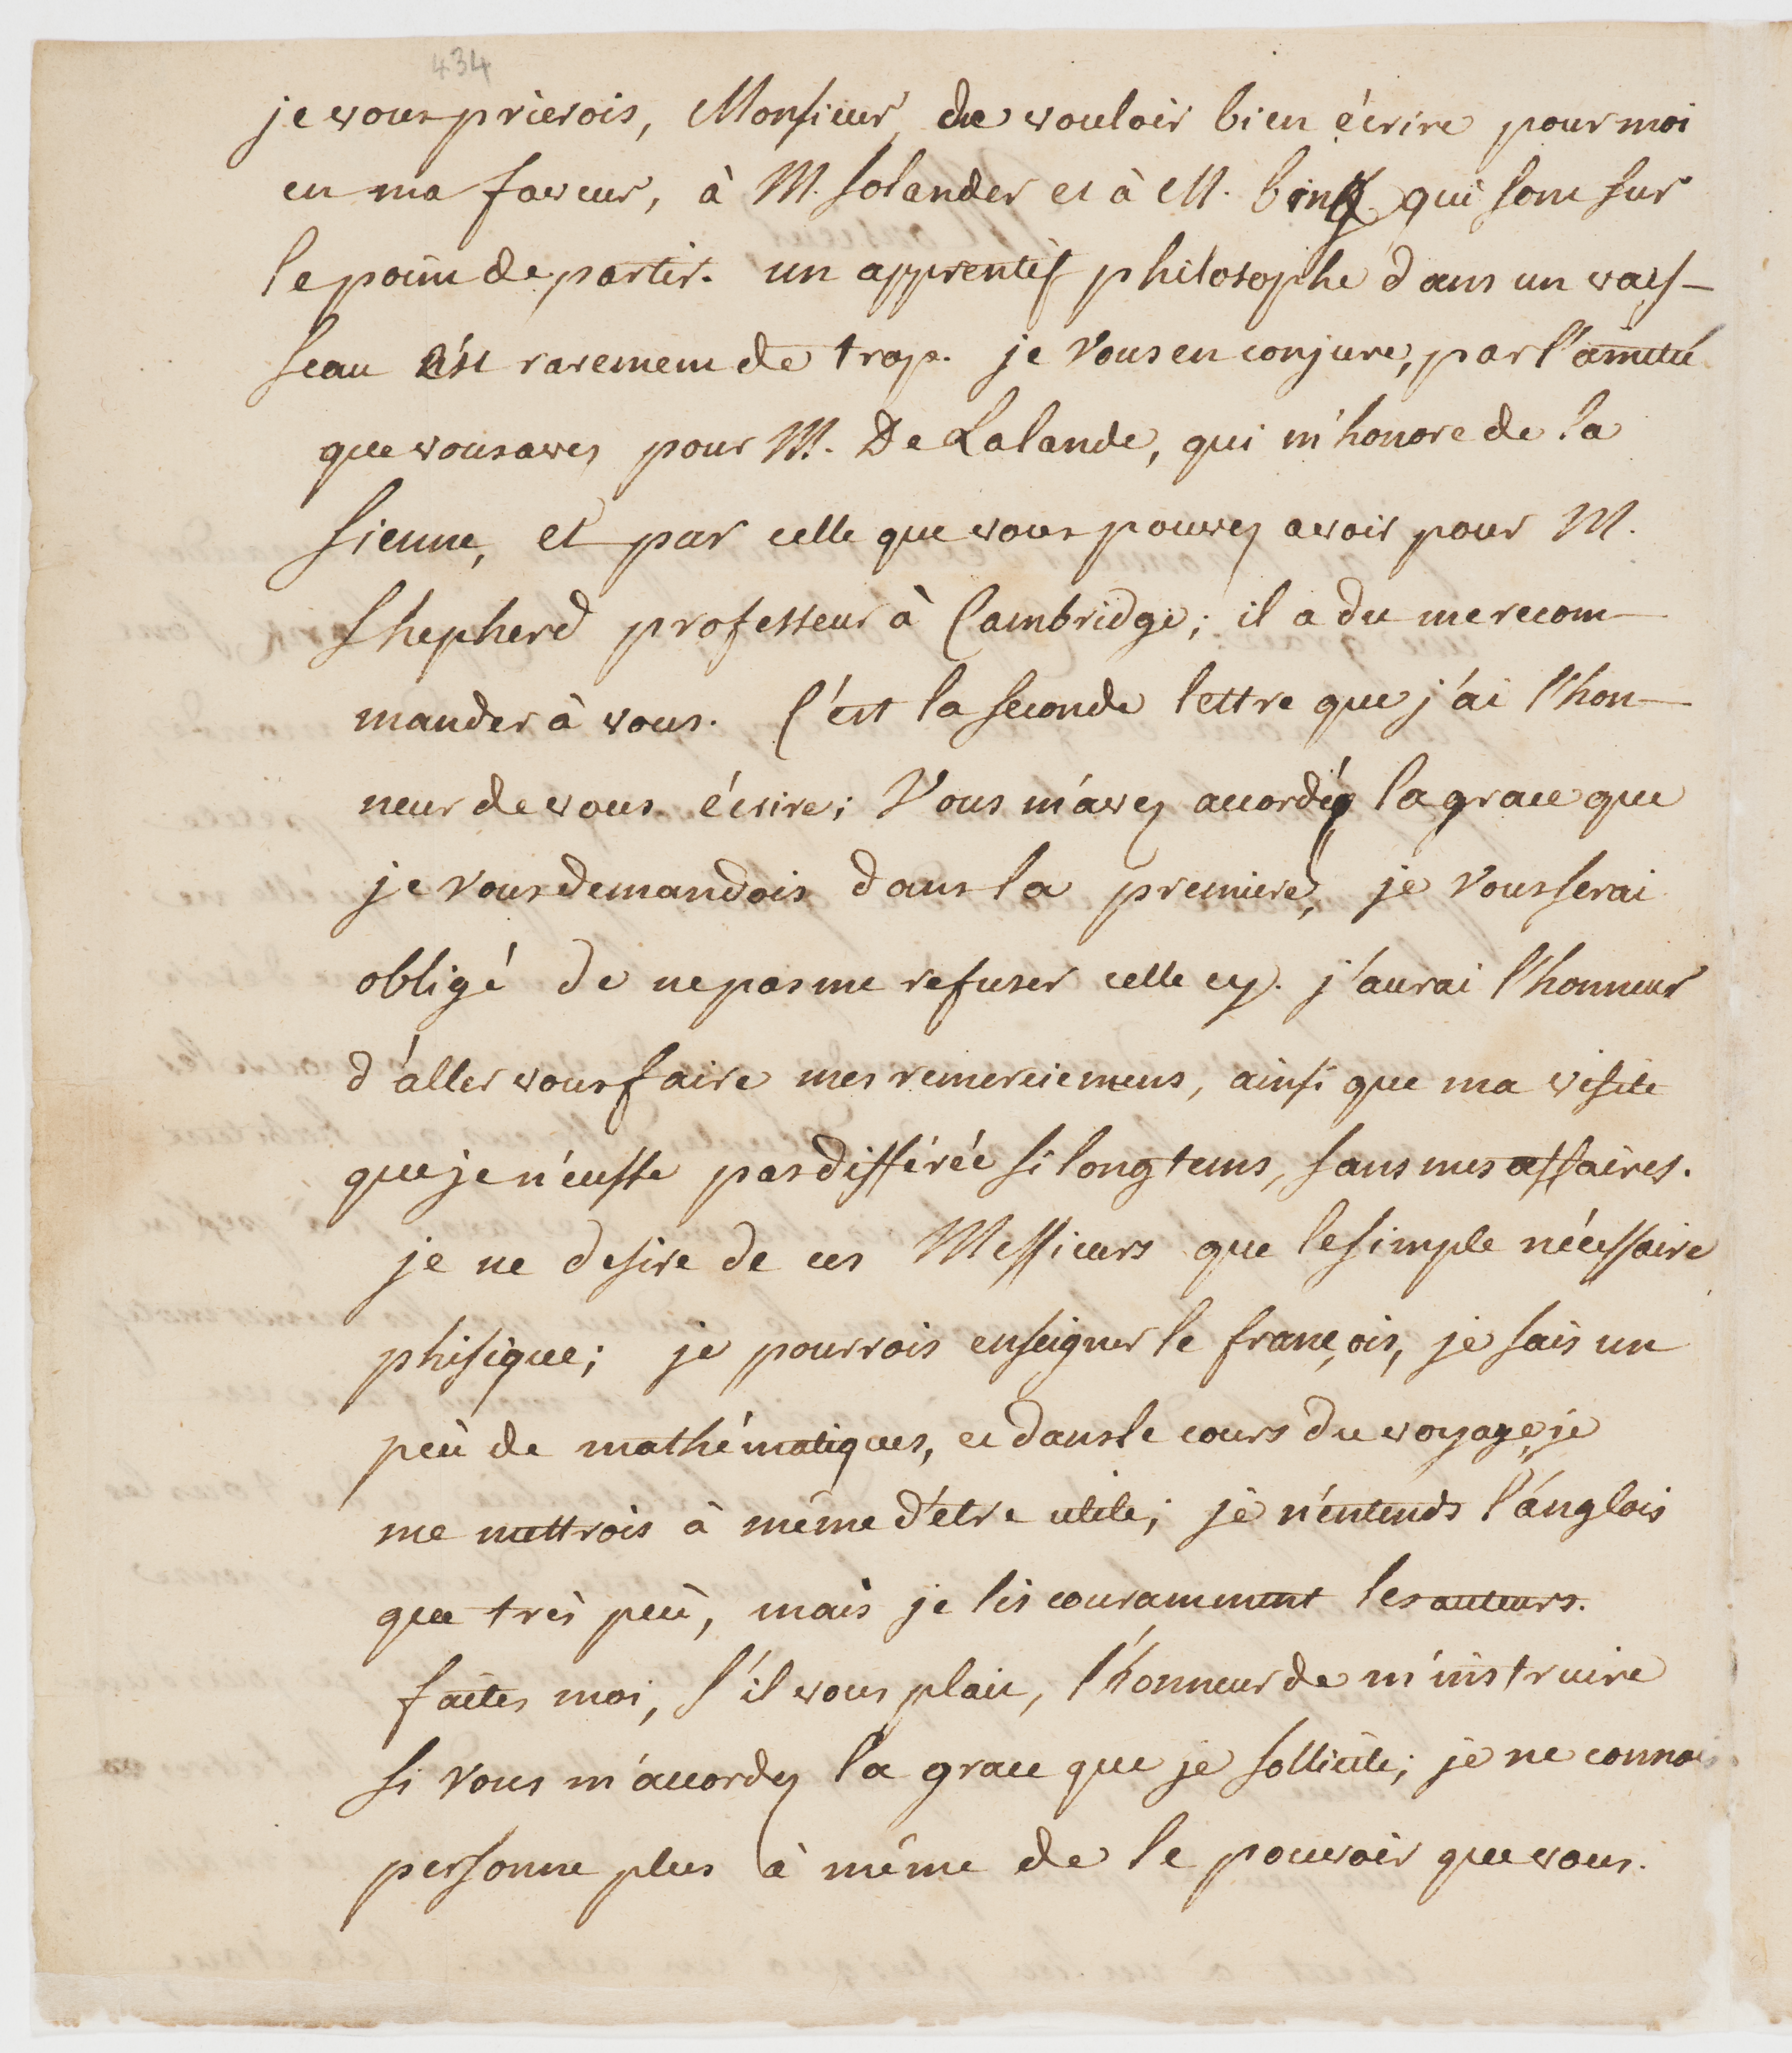 434
je vous prierois, Monsieur, de vouloir bien écrire pour moi
en ma faveur, à M. Solander et à M. bink qui sont sur
le point de partir. un apprentif philosophe dans un vais-
seau est rarement de trop. je vous en conjure, par l'amitié
que vous avez pour M. De Lalande, qui m'honore de la
sienne, et par celle que vous pouvez avoir pour M.
Shepherd professeur à Cambridge; il a du me recom-
mander à vous. C'est la seconde lettre que j'ai l'hon-
neur de vous écrire; Vous m'avez accordé la grace que
je vous demandois dans la premiere, je vous serai
obligé de ne pas me refuser celle cy. j'aurai l'honneur
d'aller vous faire mes remerciemens, ainsi que ma visite
que je n'eusse pas différée si longtems, sans mes affaires.
je ne desire de ces Messieurs que le simple nécessaire
phisique; je pourrois enseigner le françois, je sais un
peu de mathématiques, et dans le cours du voyage, je
me mettrois à même d'être utile; je n'entends l'anglois
que très peu, mais je lis couramment les auteurs.
faites moi, s'il vous plait, l'honneur de m'instruire
si vous m'accordez la grace que je sollicite; je ne connois
personne plus à même de le pouvoir que vous.